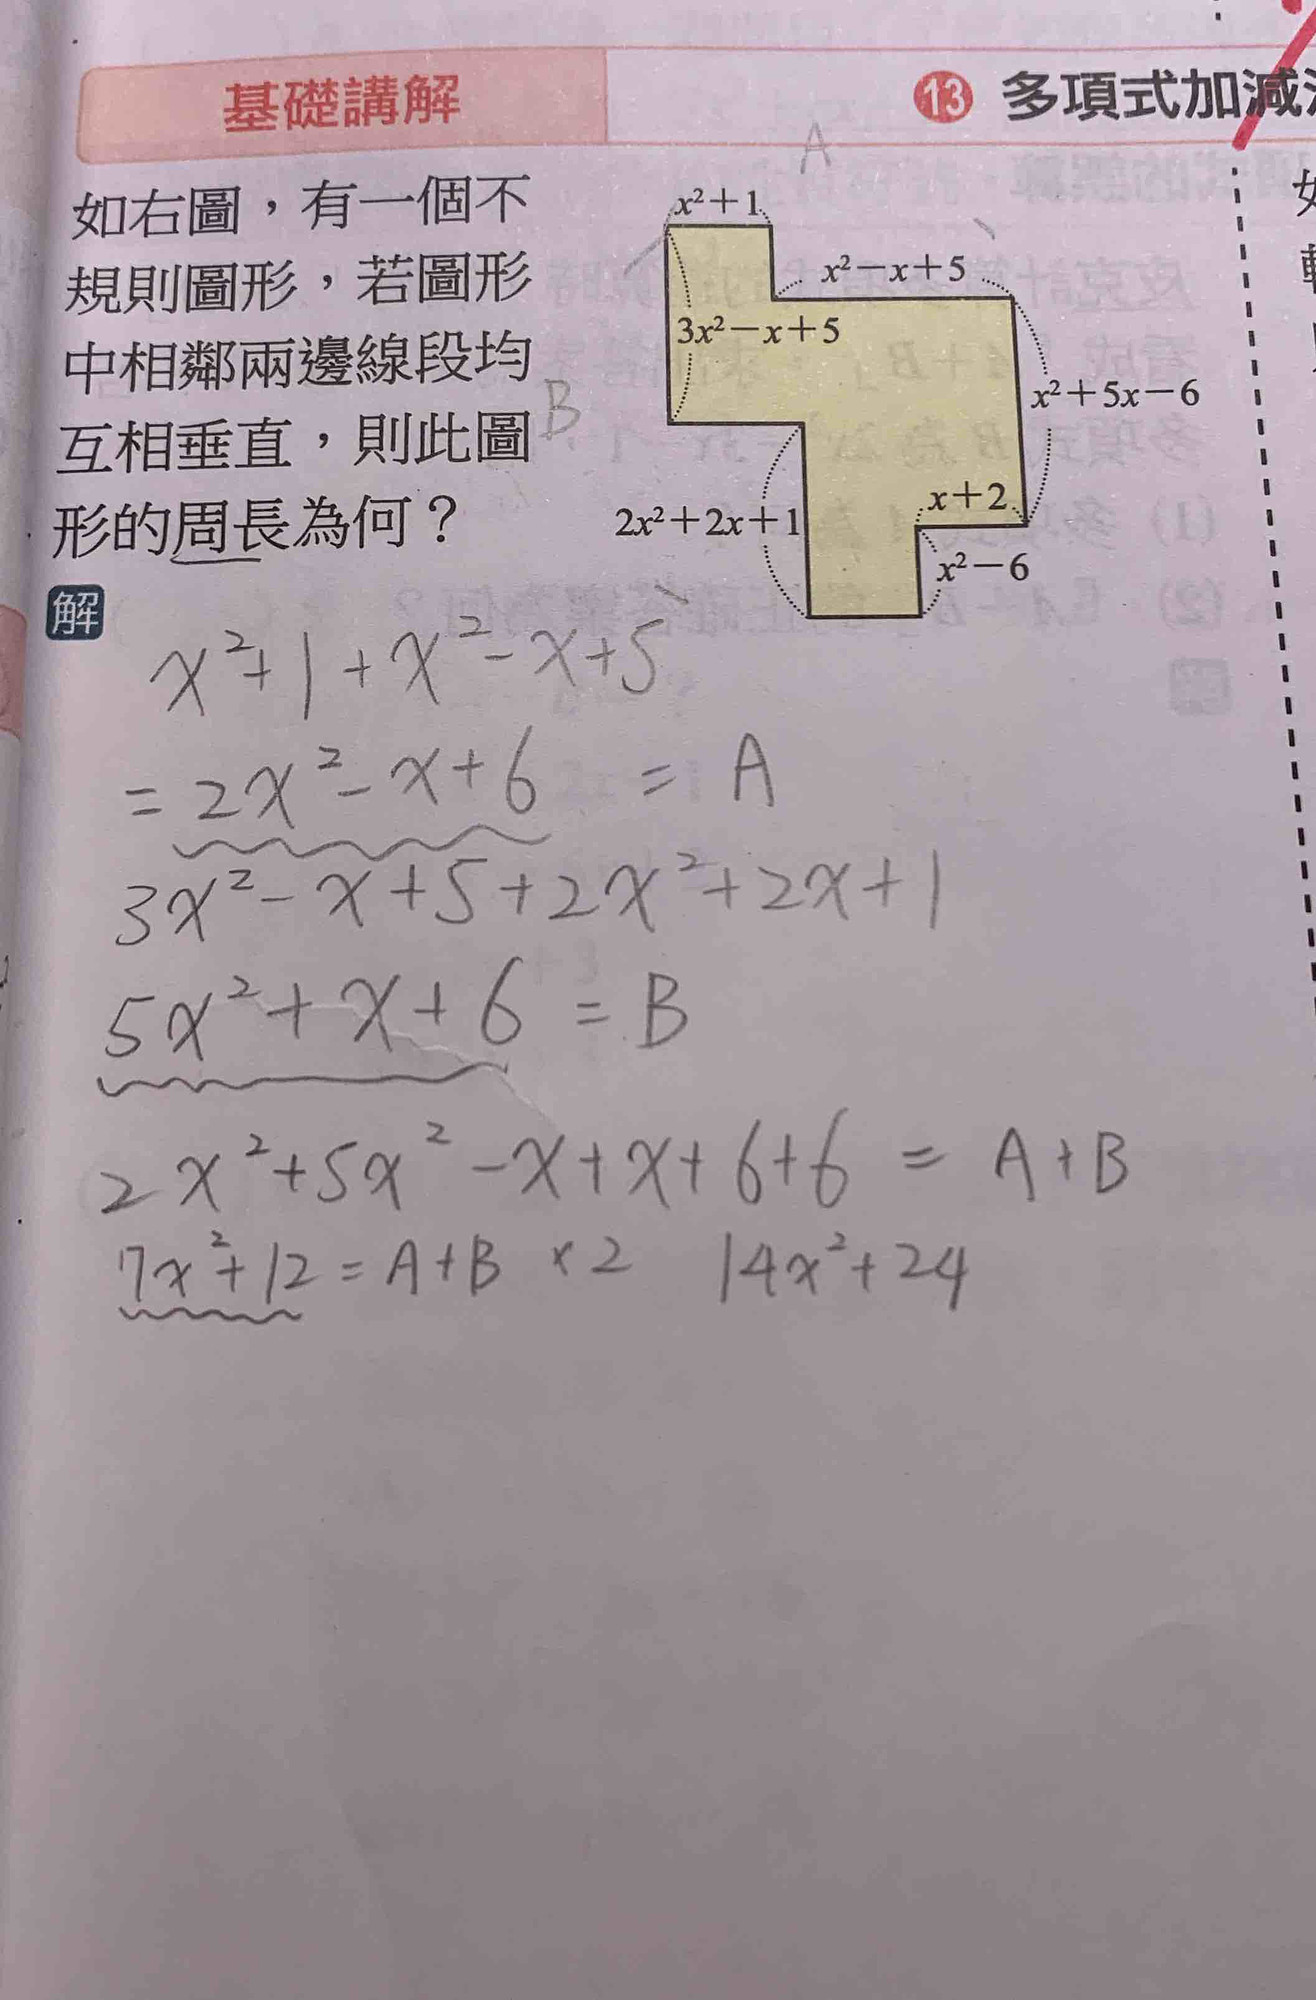 基礎講解
13 多項式加減
如右圖，有一個不
規則圖形，若圖形
中相鄰兩邊線段均
互相垂直，則此圖
形的周長為何？
A
x²+1
x²−x+5
3x²−x+5
B
x²+5x−6
x+2
2x²+2x+1
x²−6
解
x²+1+x²-x+5
=2x²-x+6 = A
3x²-x+5+2x²+2x+1
5x²+x+6 = B
2x²+5x²-x+x+6+6 = A+B
7x²+12=A+B ×2 14x²+24